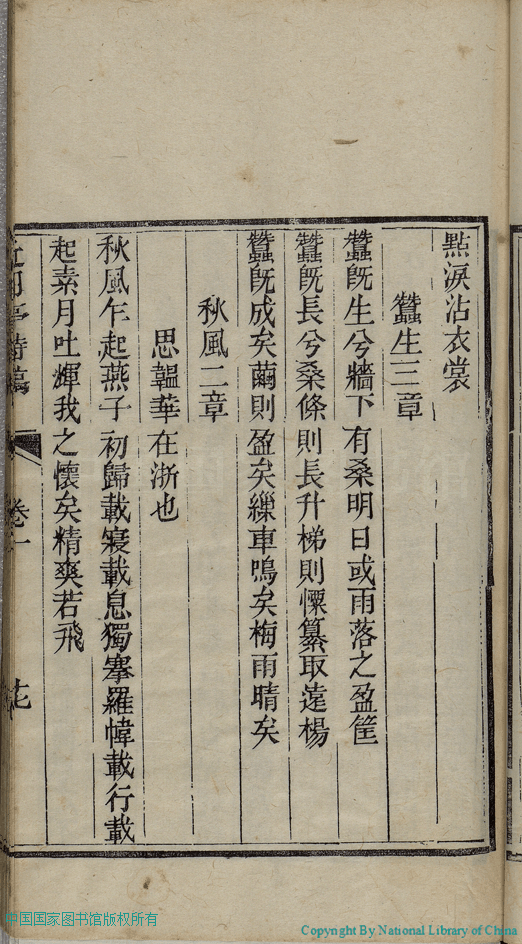 點淚沾衣裳
蠶生三章
蠶旣生兮牆下有桑明日或雨落之盈筐
蠶旣長兮桑條則長升梯則懍纂取遠楊
蠶旣成矣繭則盈矣繅車鳴矣梅雨晴矣
秋風二章
思韞華在浙也
秋風乍起燕子初歸載寢載息獨搴羅幃載行載
起素月吐輝我之懷矣精爽若飛
亭詩稿 卷一
中国国家图书馆版权所有
Copyright By National Library of China